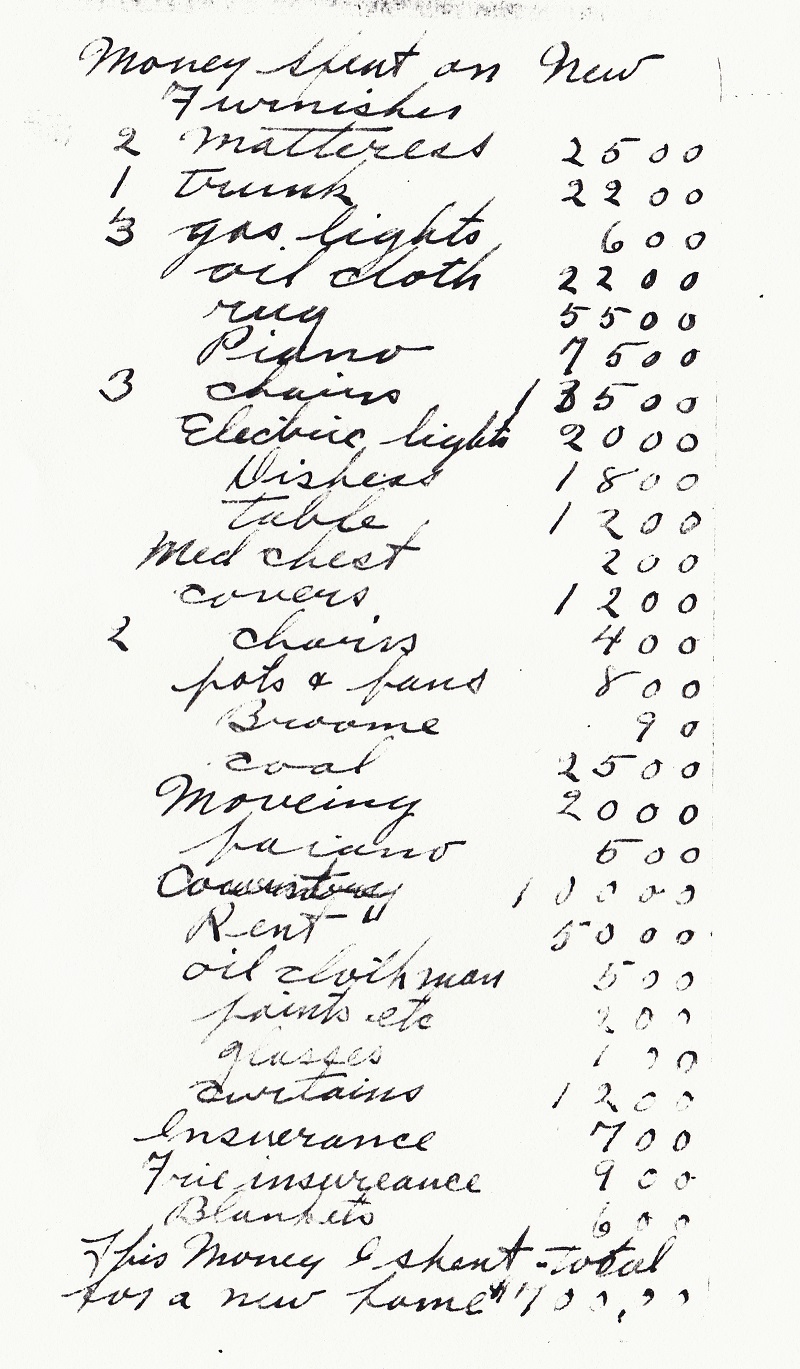 Money spent on New
Furnisher
2 Matteress 25 00
1 trunk 22 00
3 gas lights 6 00
oil cloth 22 00
rug 55 00
Piano 75 00
3 chairs 1 35 00
Electric lights 20 00
Dishess 18 00
table 12 00
Med chest 2 00
covers 12 00
2 chairs 4 00
pots & pans 8 00
Broome 90
coal 25 00
Moveing 20 00
paiano 5 00
1 00 00
Rent " 50 00
oil cloth man 5 00
paints etc 2 00
glasses 1 00
curtains 12 00
Insuerance 7 00
Frie insureance 9 00
Blankets 6 00
This Money I spent - total
for a new home $700.00